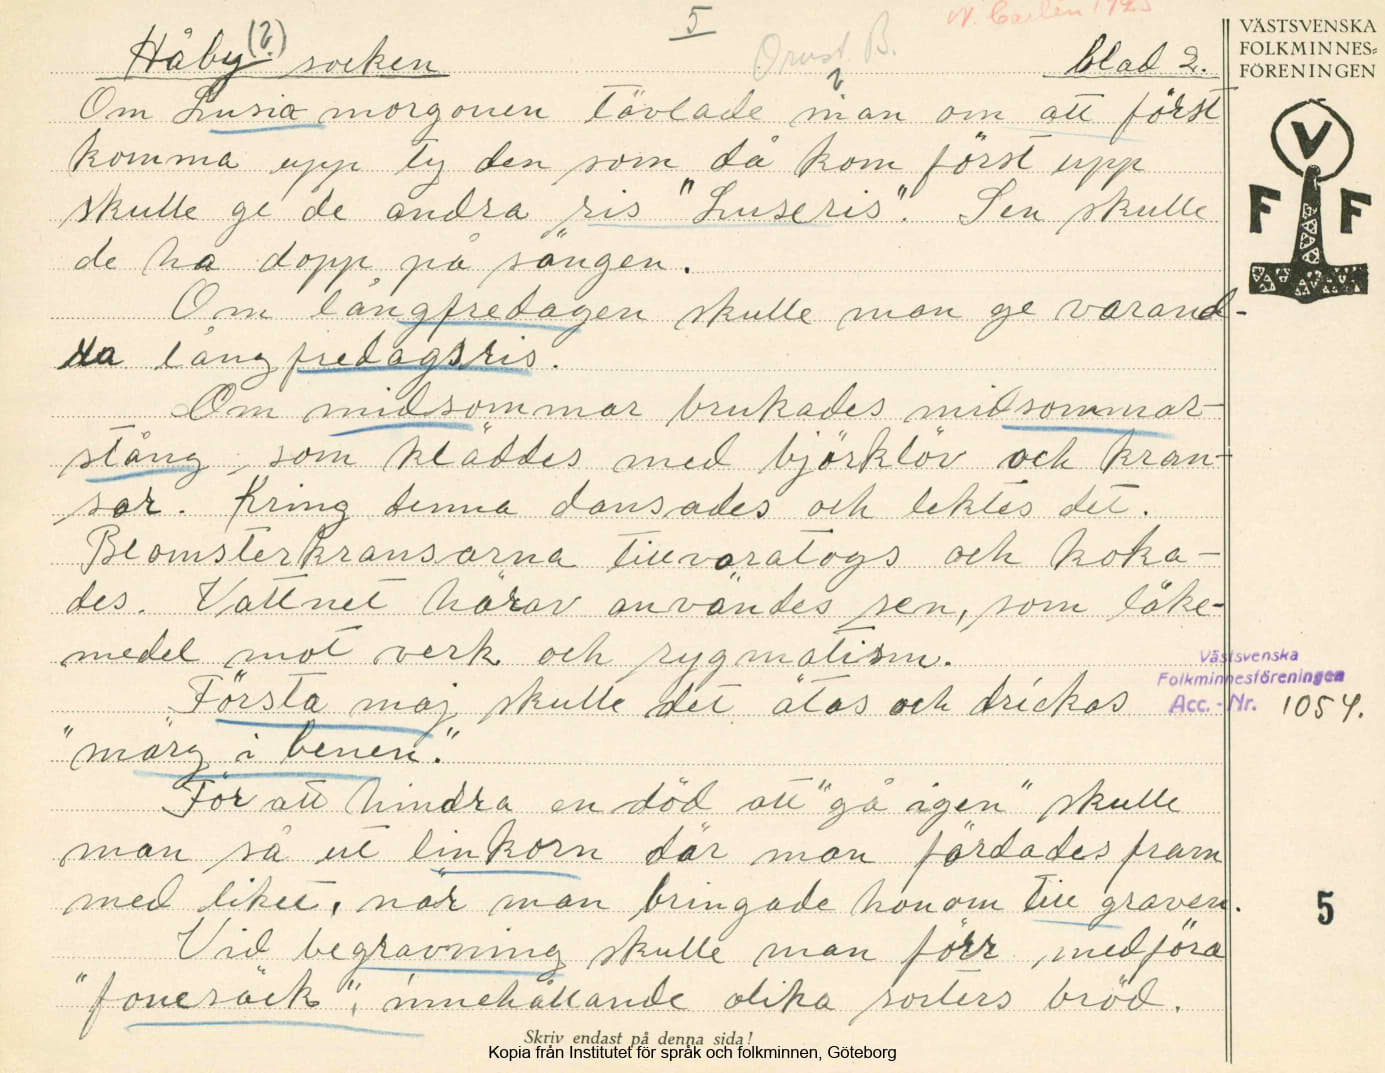 5
W. Carlén 1925
Orust B.
Håby (?) socken
blad 2.
VÄSTSVENSKA
FOLKMINNES=
FÖRENINGEN
V
F F
Om Lusia morgonen tävlade man om att först
komma upp ty den som då kom först upp
skulle ge de andra ris "Luseris". Sen skulle
de ha dopp på sängen.
Om långfredagen skulle man ge varand-
ra långfredagsris.
Om midsommar brukades midsommar-
stång, som kläddes med björklöv och kran-
sar. Kring denna dansades och lektes det.
Blomsterkransarna tillvaratogs och koka-
des. Vattnet härav användes sen, som läke-
medel mot verk och rygmatism.
Första maj skulle det ätas och drickas
"märg i benen".
För att hindra en död att "gå igen" skulle
man så ut linkorn där man färdades fram
med liket, när man bringade honom till graven.
Vid begravning skulle man förr medföra
"fonesäck", innehållande olika sorters bröd.
Västsvenska
Folkminnesföreningen
Acc.-Nr. 1054.
5
Skriv endast på denna sida!
Kopia från Institutet för språk och folkminnen, Göteborg